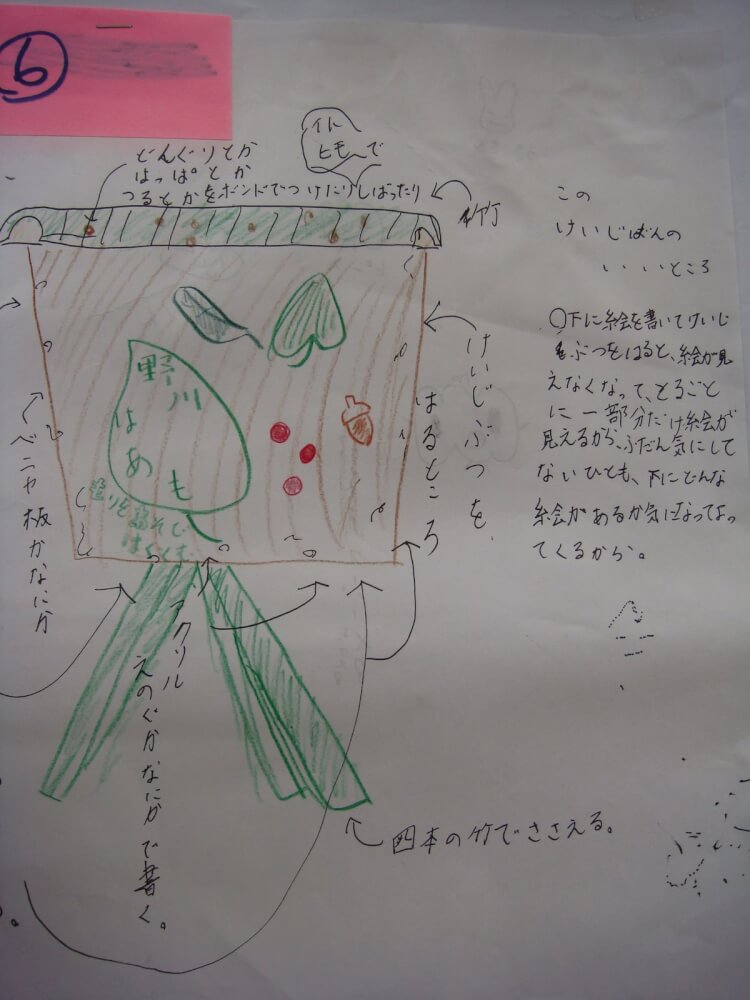 6
イト
ヒモで
どんぐりとか
はっぱとか
つるとかをボンドでつけたりしばったり
竹
この
けいじばんの
いいところ
○下に絵を書いてけいじ
ぶつをはると、絵が見
えなくなって、とるごと
に一部分だけ絵が
見えるから、ふだん気にして
ないひとも、下にどんな
絵があるか気になってよっ
てくるから。
けいじぶつを、
はるところ
野川
はあも
ベニヤ板かなにか
アクリル
えのぐかなにかで書く。
四本の竹でささえる。